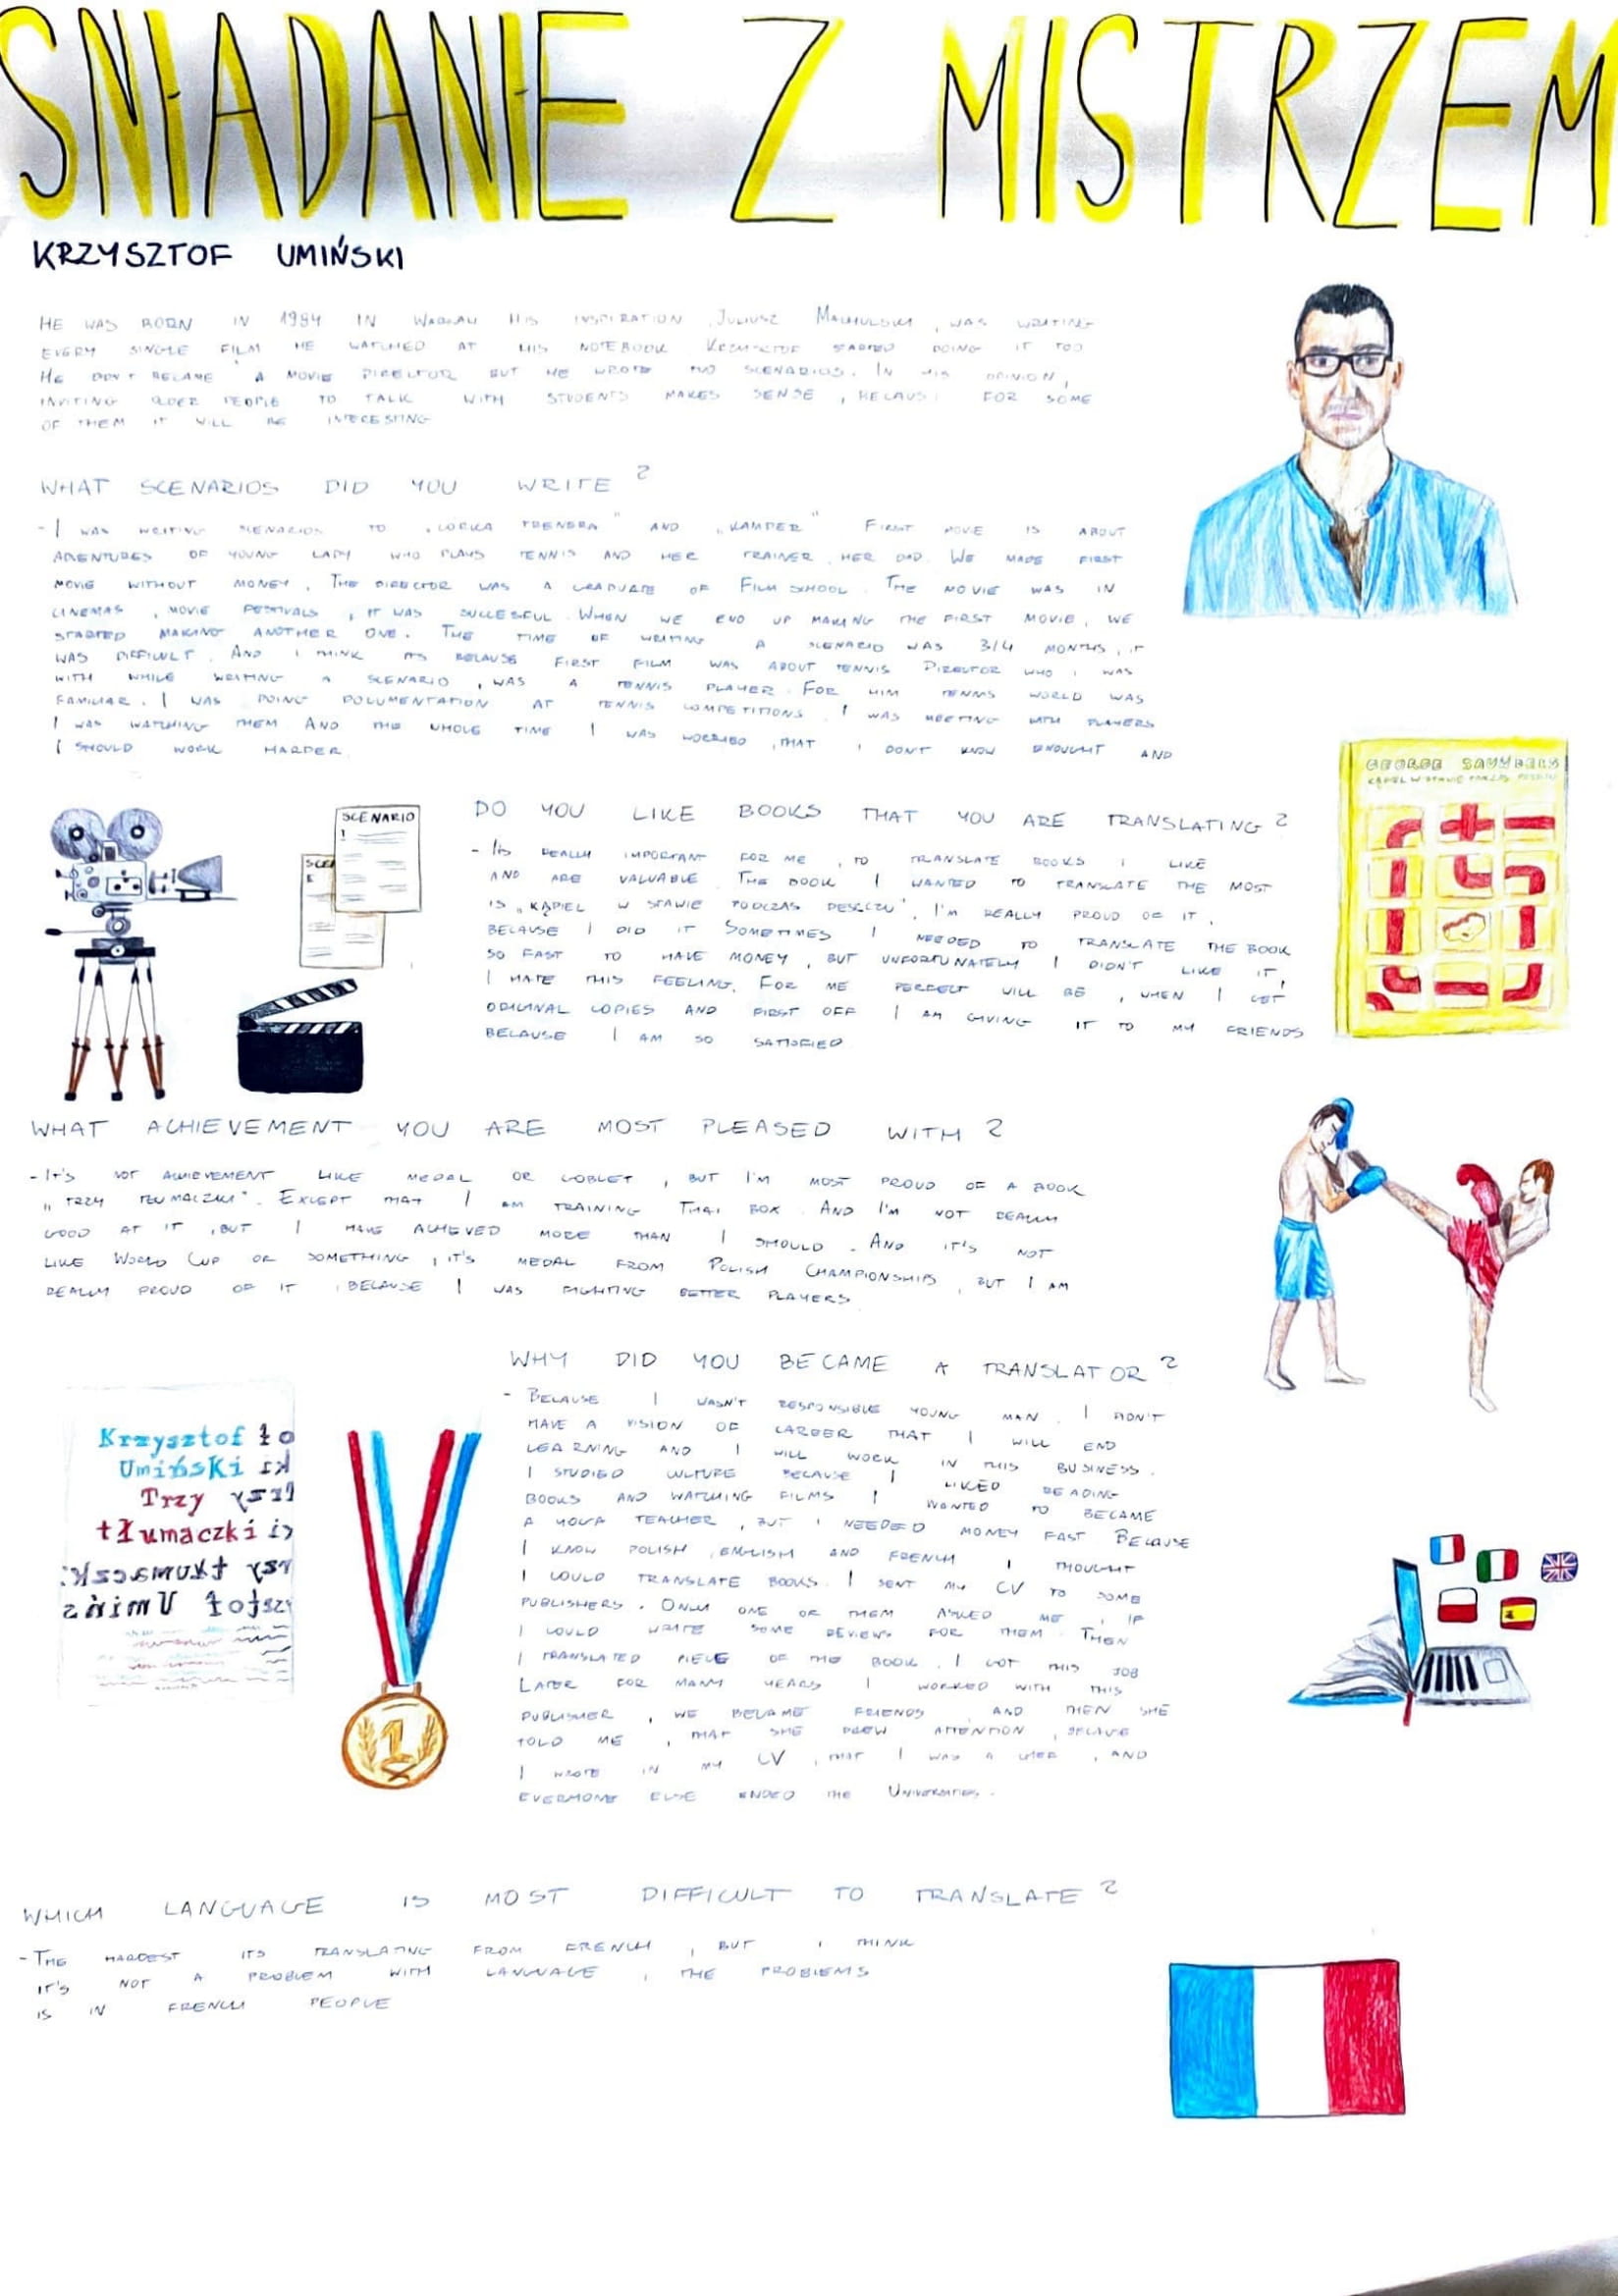 SNIADANIE Z MISTRZEM
KRZYSZTOF UMIŃSKI
HE WAS BORN IN 1984 IN HIS INSPIRATION, JULIUSZ MACHULSKI, WAS WRITING
EVERY SINGLE FILM HE WATCHED AT HIS NOTEBOOK KRZYSZTOF STARTED DOING IT TOO
HE DON'T BECAME A MOVIE DIRECTOR BUT HE WROTE TWO SCENARIOS. IN HIS OPINION,
INVITING OLDER PEOPLE TO TALK WITH STUDENTS MAKES SENSE, BECAUSE FOR SOME
OF THEM IT WILL BE INTERESTING
WHAT SCENARIOS DID YOU WRITE?
- I WAS WRITING SCENARIOS TO „CÓRKA TRENERA" AND „KAMPER" FIRST MOVIE IS ABOUT
ADVENTURES OF YOUNG LADY WHO PLAYS TENNIS AND HER TRAINER, HER DAD. WE MADE FIRST
MOVIE WITHOUT MONEY. THE DIRECTOR WAS A GRADUATE OF FILM SCHOOL. THE MOVIE WAS IN
CINEMAS, MOVIE FESTIVALS, IT WAS SUCCESFUL. WHEN WE END UP MAKING THE FIRST MOVIE, WE
STARTED MAKING ANOTHER ONE. THE TIME OF WRITING A SCENARIO WAS 3/4 MONTHS, IT
WAS DIFFICULT. AND I THINK ITS BECAUSE FIRST FILM WAS ABOUT TENNIS DIRECTOR WHO I WAS
WITH WHILE WRITING A SCENARIO, WAS A TENNIS PLAYER. FOR HIM TENNIS WORLD WAS
FAMILIAR. I WAS DOING DOCUMENTATION AT TENNIS COMPETITIONS. I WAS MEETING WITH PLAYERS
I WAS WATCHING THEM AND THE WHOLE TIME I WAS WORRIED, THAT I DON'T KNOW AND
I SHOULD WORK HARDER
SCENARIO
DO YOU LIKE BOOKS THAT YOU ARE TRANSLATING?
- ITS REALLY IMPORTANT FOR ME, TO TRANSLATE BOOKS I LIKE
AND ARE VALUABLE. THE BOOK I WANTED TO TRANSLATE THE MOST
IS „KĄPIEL W STAWIE PODCZAS DESZCZU". I'M REALLY PROUD OF IT,
BECAUSE I DID IT SOMETIMES I NEEDED TO TRANSLATE THE BOOK
SO FAST TO HAVE MONEY, BUT UNFORTUNATELY I DIDN'T LIKE IT,
I HATE THIS FEELING. FOR ME PERFECT WILL BE, WHEN I GET
ORIGINAL COPIES AND FIRST OFF I AM GIVING IT TO MY FRIENDS
BECAUSE I AM SO SATISFIED
GEORGE SAUNDERS
KĄPIEL W STAWIE PODCZAS DESZCZU
WHAT ACHIEVEMENT YOU ARE MOST PLEASED WITH?
- IT'S NOT ACHIEVEMENT LIKE MEDAL OR GOBLET, BUT I'M MOST PROUD OF A BOOK
„TRZY TŁUMACZKI". EXCEPT THAT I AM TRAINING THAI BOX. AND I'M NOT REALLY
GOOD AT IT, BUT I HAVE ACHIEVED MORE THAN I SHOULD. AND IT'S NOT
LIKE WORLD CUP OR SOMETHING, IT'S MEDAL FROM POLISH CHAMPIONSHIPS, BUT I AM
REALLY PROUD OF IT, BECAUSE I WAS FIGHTING BETTER PLAYERS
WHY DID YOU BECAME A TRANSLATOR?
- BECAUSE I WASN'T RESPONSIBLE YOUNG MAN. I DIDN'T
HAVE A VISION OF CAREER THAT I WILL END
LEARNING AND I WILL WORK IN THIS BUSINESS.
I STUDIED CULTURE BECAUSE I LIKED READING
BOOKS AND WATCHING FILMS I WANTED TO BECAME
A YOGA TEACHER, BUT I NEEDED MONEY FAST BECAUSE
I KNOW POLISH, ENGLISH AND FRENCH I THOUGHT
I COULD TRANSLATE BOOKS. I SENT MY CV TO SOME
PUBLISHERS. ONLY ONE OF THEM ASKED ME, IF
I COULD WRITE SOME REVIEWS FOR THEM. THEN
I TRANSLATED PIECE OF THE BOOK. I GOT THIS JOB
LATER FOR MANY YEARS I WORKED WITH THIS
PUBLISHER, WE BECAME FRIENDS, AND THEN SHE
TOLD ME, THAT SHE DREW ATTENTION, BECAUSE
I WROTE IN MY CV, THAT I WAS A, AND
EVERYONE ELSE ENDED THE UNIVERSITIES.
Krzysztof
Umiński
Trzy
tłumaczki
1
WHICH LANGUAGE IS MOST DIFFICULT TO TRANSLATE?
- THE HARDEST ITS TRANSLATING FROM FRENCH, BUT I THINK
IT'S NOT A PROBLEM WITH LANGUAGE, THE PROBLEMS
IS IN FRENCH PEOPLE